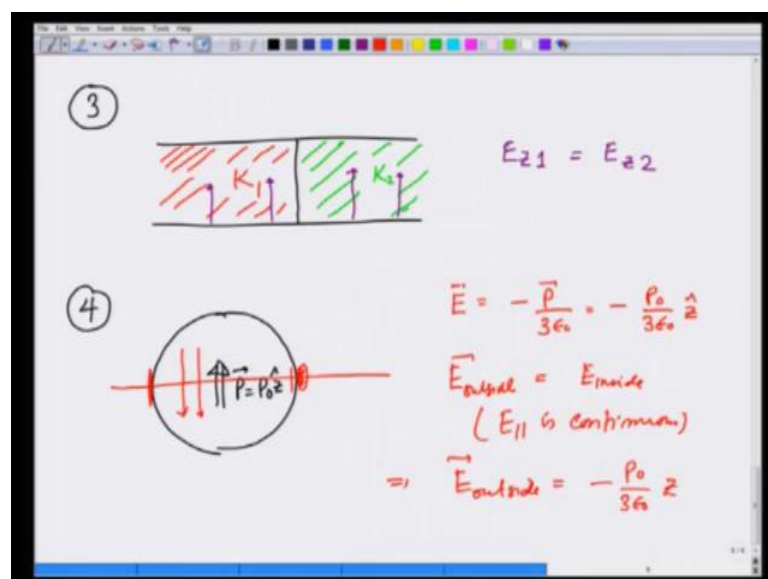 File Edit View Insert Actions Tools Help
③
K₁ K₂ E_{z1} = E_{z2}
④
\vec{E} = - \frac{\vec{P}}{3ε₀} = - \frac{P₀}{3ε₀} \hat{z}
\vec{P} = P₀\hat{z}
\vec{E}_{outside} = E_{inside}
( E_{||} is continuous)
⇒ \vec{E}_{outside} = - \frac{P₀}{3ε₀} z